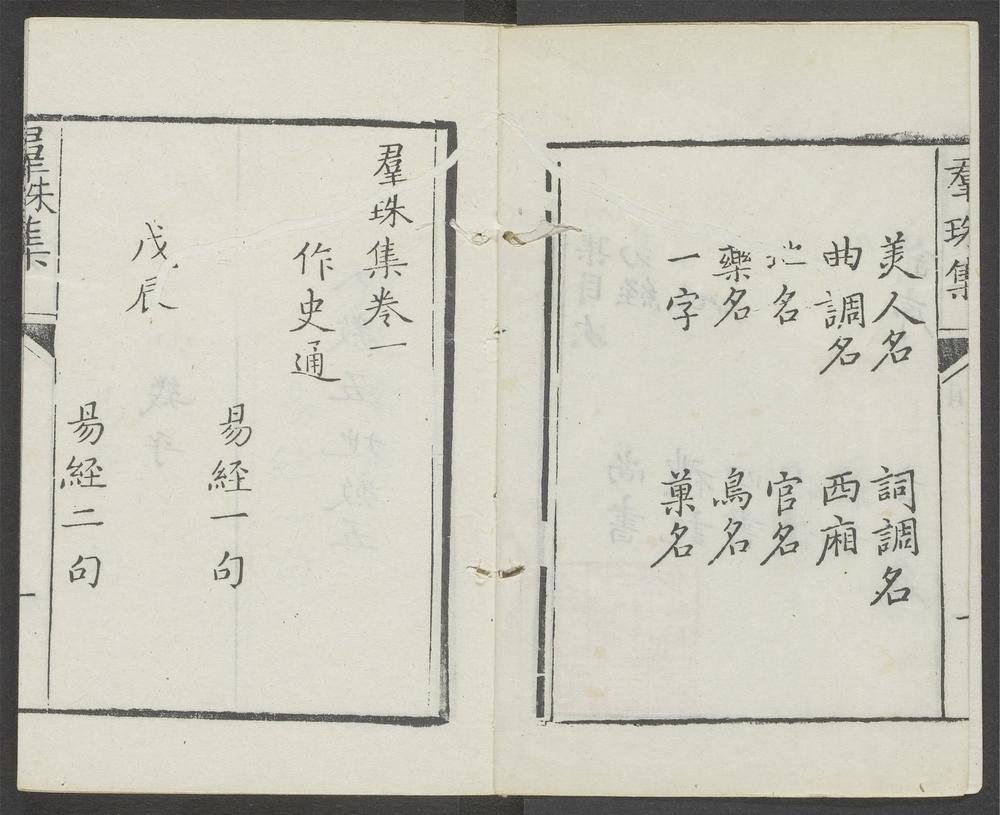 羣珠集
一
美人名
詞調名
曲調名
西廂
地名
官名
藥名
鳥名
一字
菓名
羣珠集卷一
作史通
易経一句
戊辰
易経二句
羣珠集
一